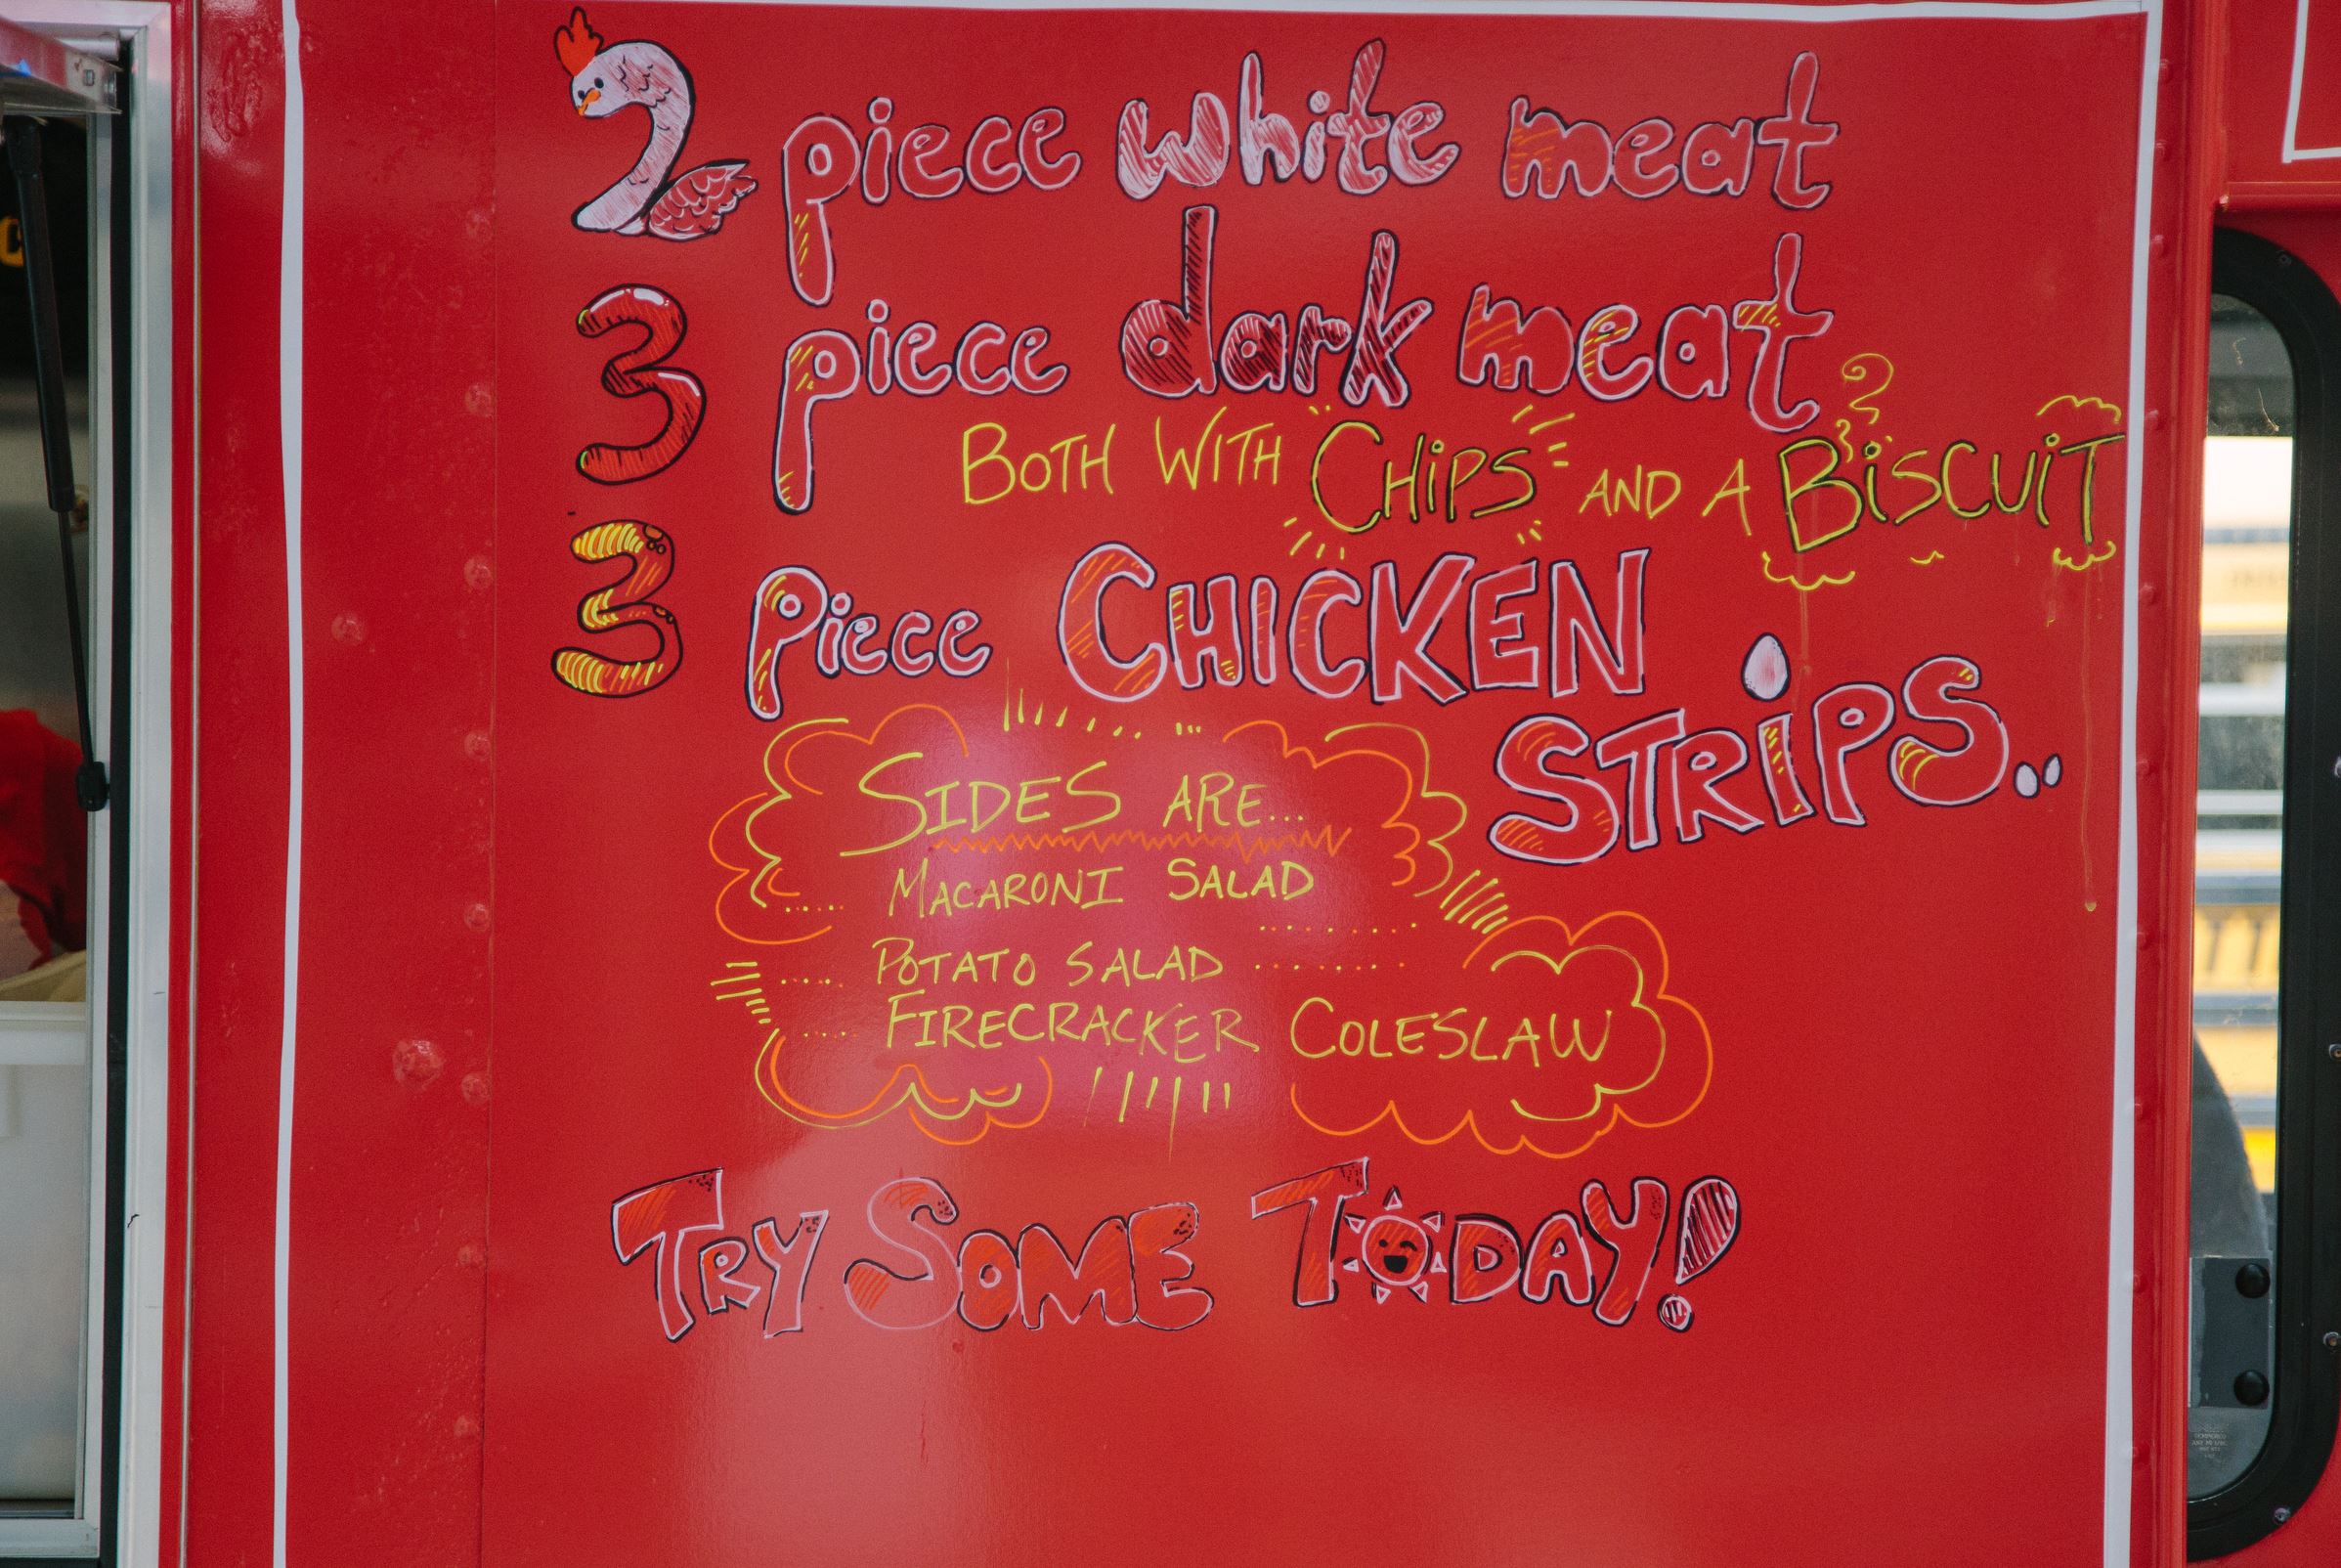 2 piece white meat
3 piece dark meat
BOTH WITH CHiPS AND A BiSCUiT
3 Piece CHICKEN
STRiPS..
SIDES ARE...
MACARONI SALAD
POTATO SALAD
FIRECRACKER COLESLAW
TRY SOME TODAY!